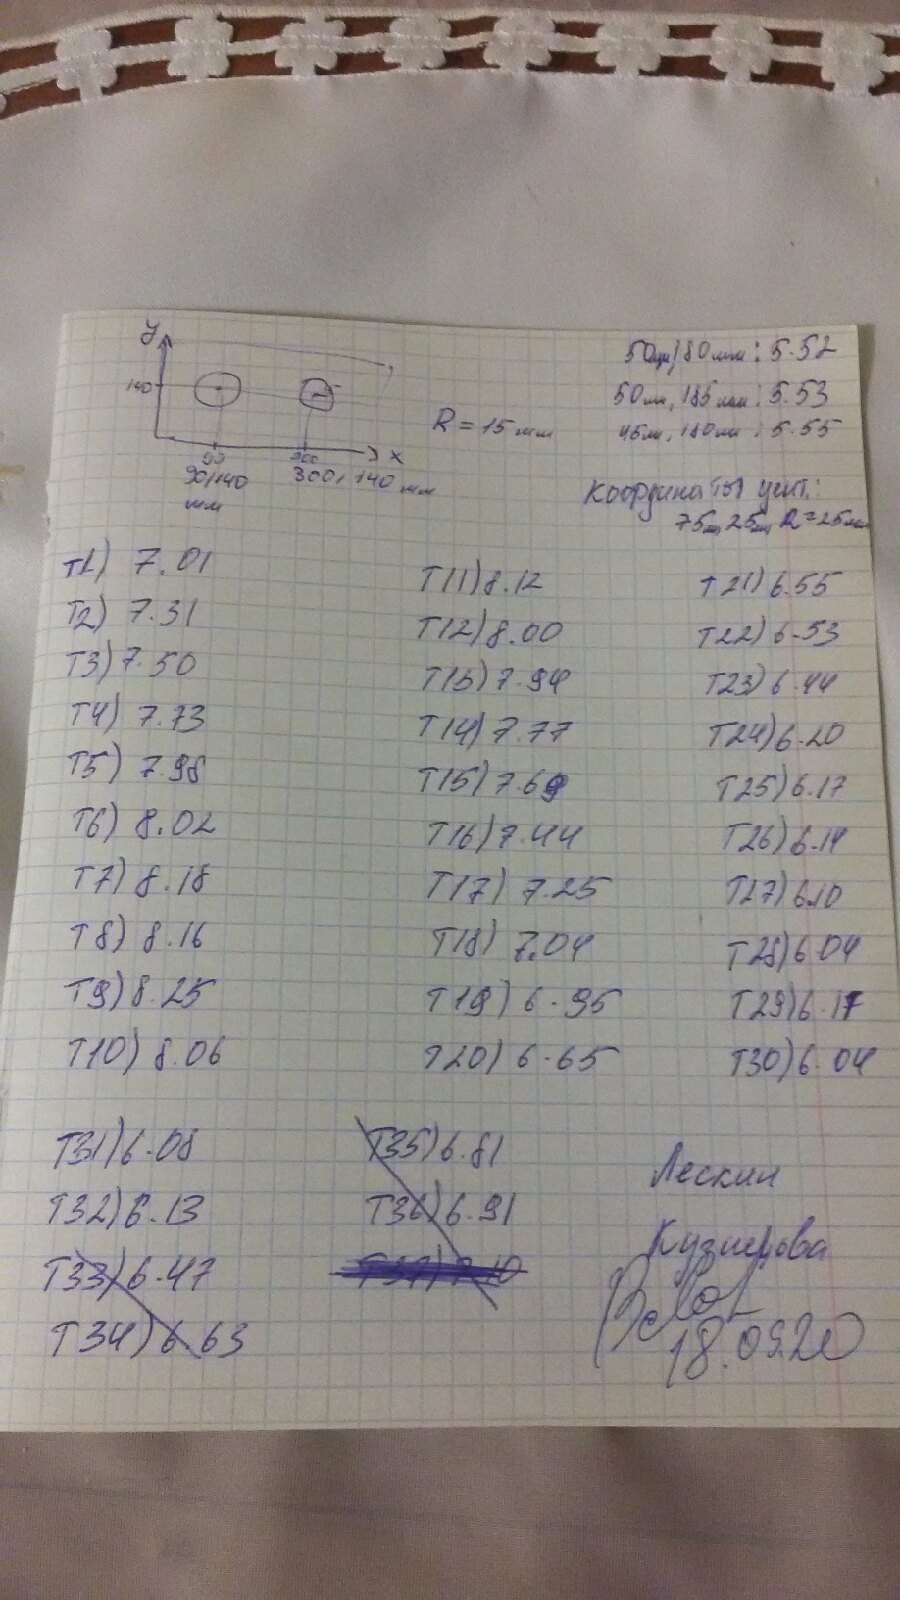 y
140
90
300
x
90,140
мм
300, 140 мм
R = 15 мм
50мм, 180мм : 5.52
50мм, 185мм : 5.53
45мм, 180мм : 5.55
Координаты цент.:
75мм, 25мм, R=25мм
T1) 7.01
T2) 7.31
T3) 7.50
T4) 7.73
T5) 7.98
T6) 8.02
T7) 8.18
T8) 8.16
T9) 8.25
T10) 8.06
T11) 8.12
T12) 8.00
T13) 7.94
T14) 7.77
T15) 7.69
T16) 7.44
T17) 7.25
T18) 7.04
T19) 6.95
T20) 6.65
T21) 6.55
T22) 6.53
T23) 6.44
T24) 6.20
T25) 6.17
T26) 6.14
T27) 6.10
T28) 6.04
T29) 6.17
T30) 6.04
T31) 6.08
T32) 6.13
T33) 6.47
T34) 6.63
T35) 6.81
T36) 6.91
T37) 7.10
Лескин
Кузнецова
18.09.20